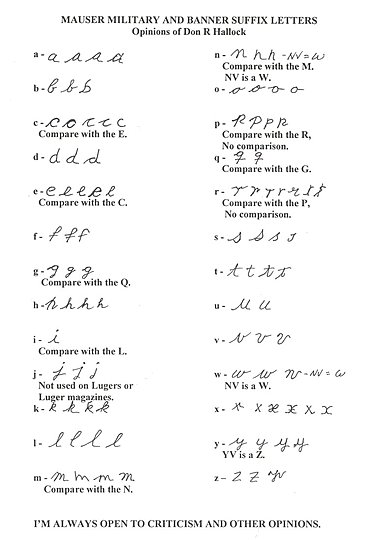 MAUSER MILITARY AND BANNER SUFFIX LETTERS
Opinions of Don R Hallock
a - a a a a
b - b b b
c - c c c c c
Compare with the E.
d - d d d
e - e e e e l
Compare with the C.
f - f f f
g - g g g
Compare with the Q.
h - h h h h
i - i
Compare with the L.
j - j j j
Not used on Lugers or
Luger magazines.
k - k k k k
l - l l l l
m - m m m m
Compare with the N.
n - n n n -NV = W
Compare with the M.
NV is a W.
o - o o o o
p - p p p p
Compare with the R,
No comparison.
q - q q
Compare with the G.
r - r r r r r r r
Compare with the P,
No comparison.
s - s s s s
t - t t t t
u - u u
v - v v v
w - w w w -NV = W
NV is a W.
x - x x x x x x
y - y y y y
YV is a Z.
z - z z YV
I'M ALWAYS OPEN TO CRITICISM AND OTHER OPINIONS.